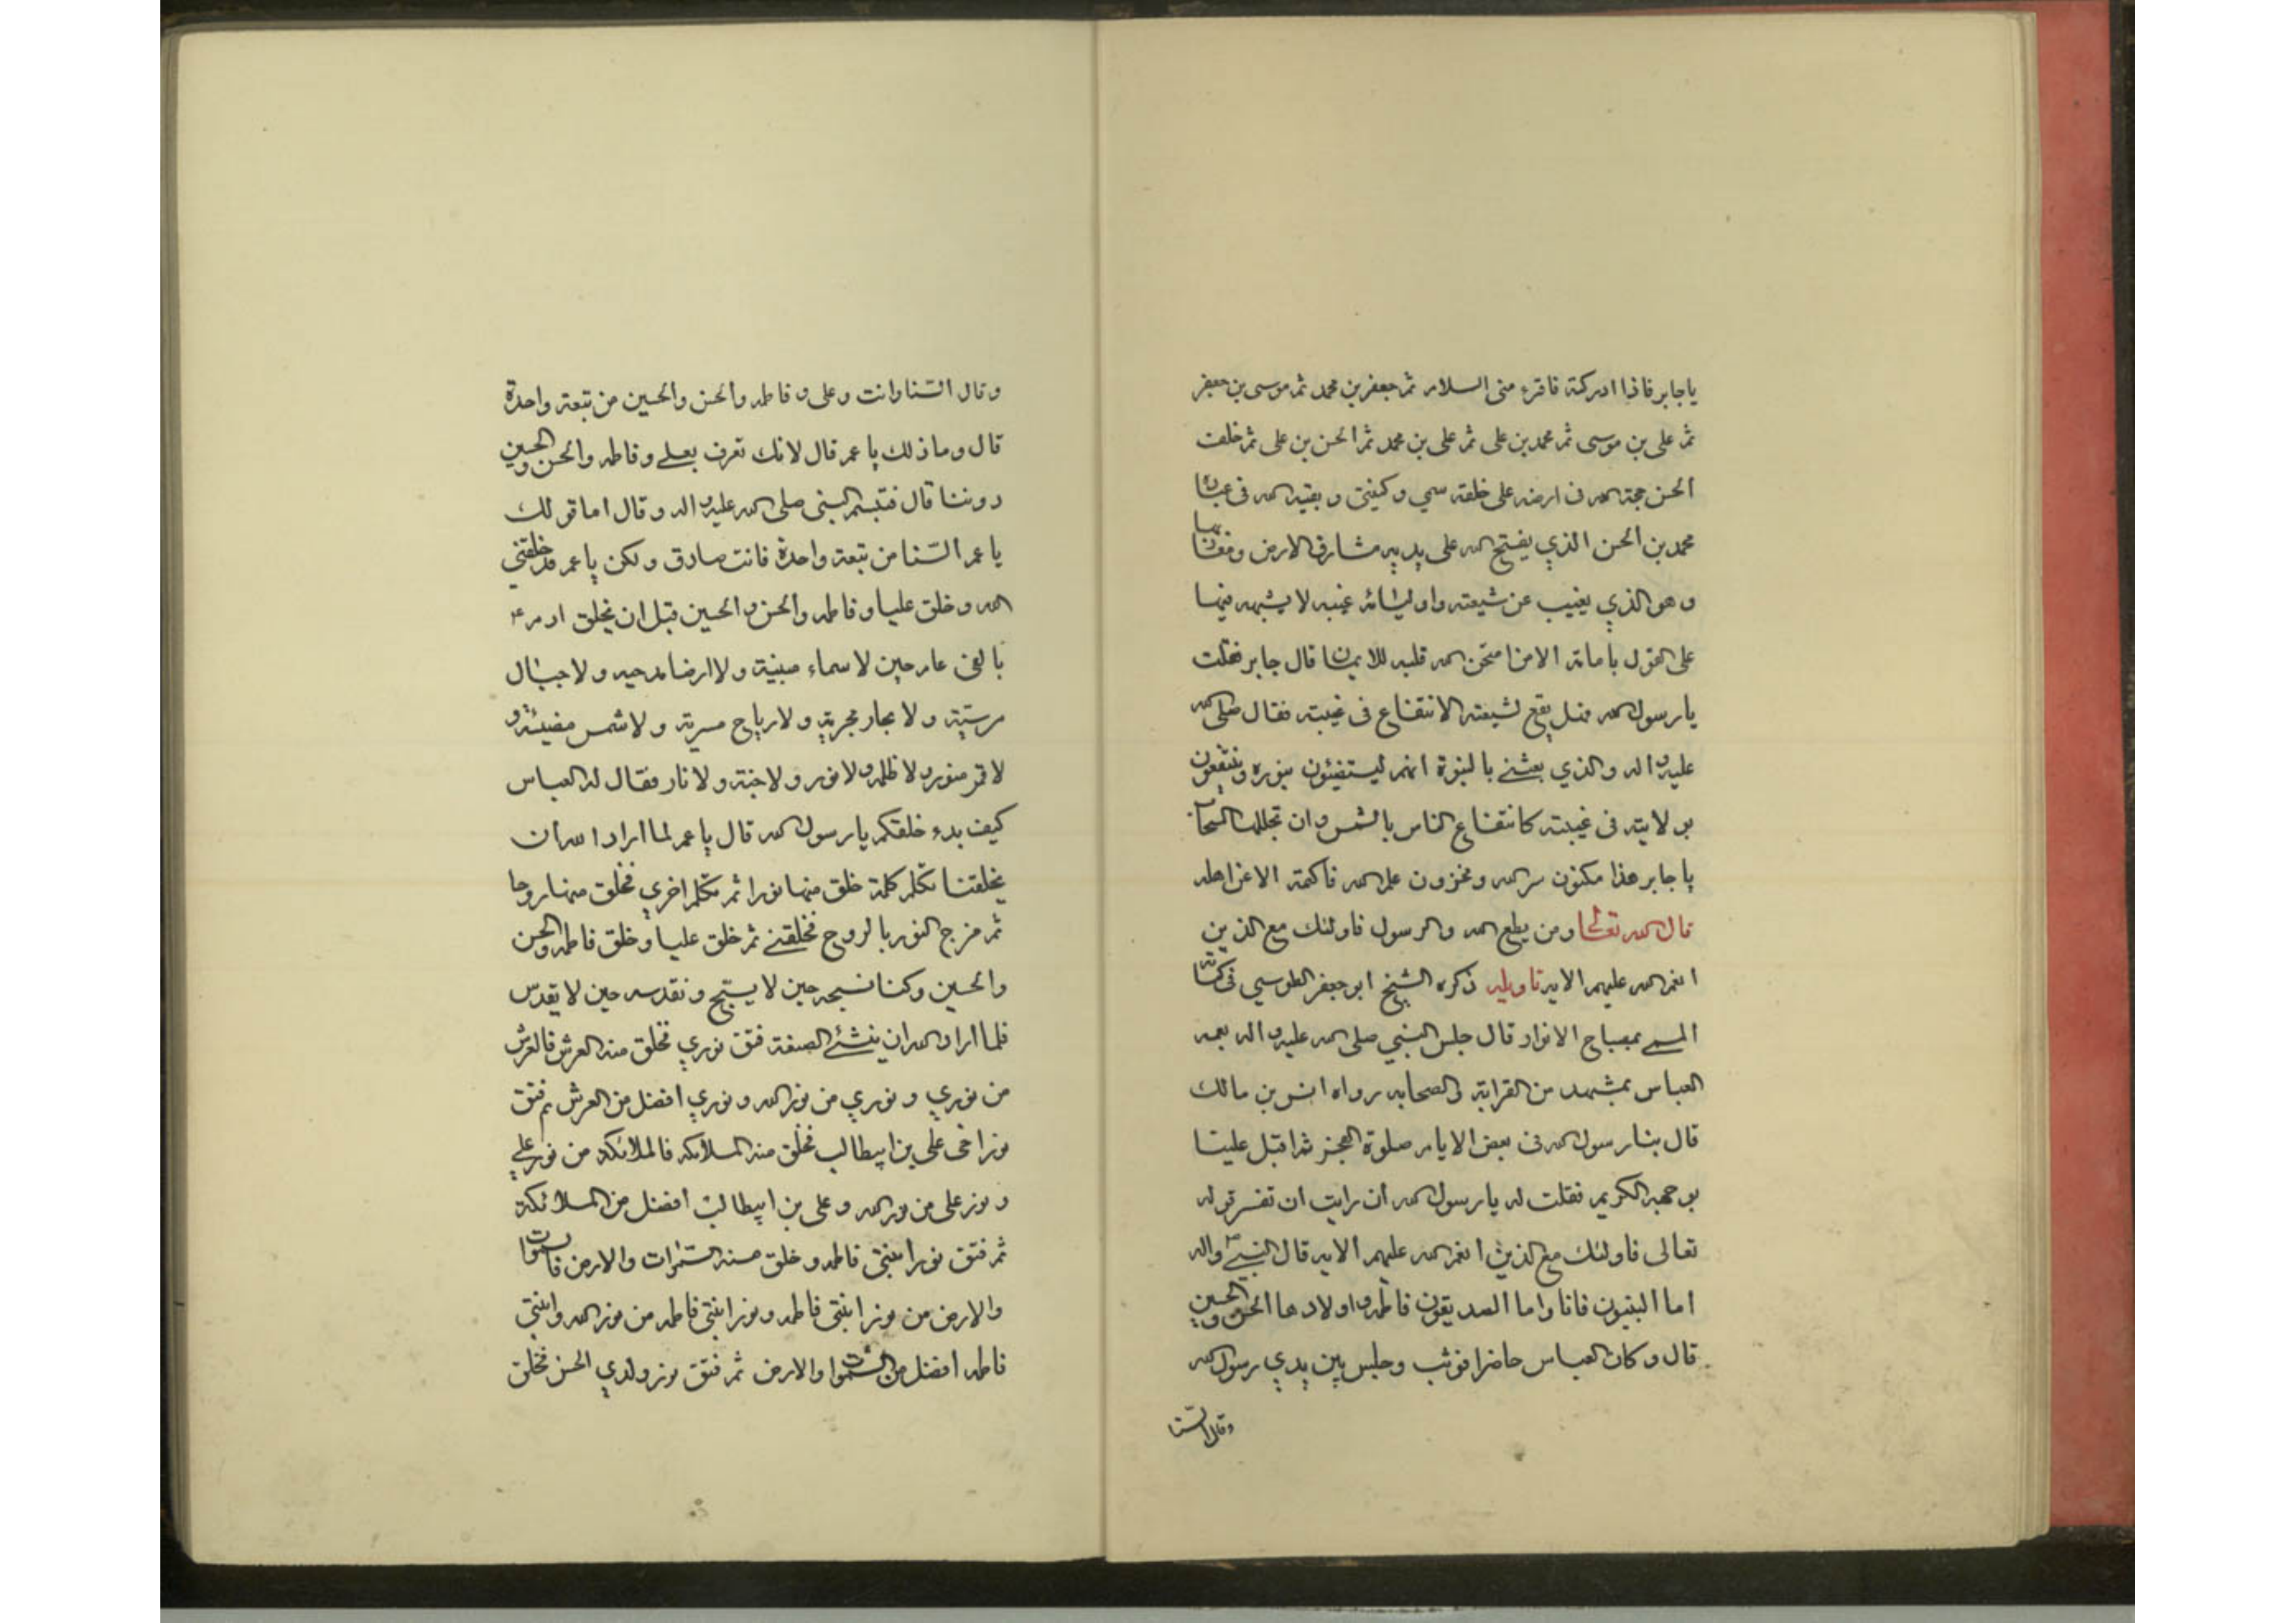 ياجابر فاذا ادركته فاقرء منى السلام ثم جعفر بن محمد ثم موسى بن جعفر
ثم على بن موسى ثم محمد بن على ثم على بن محمد ثم الحسن بن على ثم خلف
الحسن حجة الله فى ارضه على خلقه سمي وكنيتى وبقية الله فى عباده
محمد بن الحسن الذي يفتح الله على يديه مشارق الارض ومغاربها
وهو الذي يغيب عن شيعته واوليائه غيبه لا يثبت فيها
على القول بامامته الا من امتحن الله قلبه للايمان قال جابر فقلت
يا رسول الله فهل يقع لشيعته الانتفاع فى غيبته فقال صلى الله
عليه واله والذي بعثنى بالنبوة انهم ليستضيئون بنوره وينتفعون
بولايته فى غيبته كانتفاع الناس بالشمس وان تجللها السحاب
يا جابر هذا مكنون سر الله ومخزون علم الله فاكتمه الا عن اهله
قال الله تعالى ومن يطع الله والرسول فاولئك مع الذين
انعم الله عليهم الاية تاويله ذكره الشيخ ابو جعفر الطوسي فى كتابه
المسمى بمصباح الانوار قال جلس النبي صلى الله عليه واله بعمه
العباس بمشهد من القرابة والصحابه رواه انس بن مالك
قال بنا رسول الله فى بعض الايام صلوة الفجر ثم اقبل علينا
بوجهه الكريم فقلت له يا رسول الله ان رايت ان تفسر قوله
تعالى فاولئك مع الذين انعم الله عليهم الاية قال النبي ص واله
اما النبيون فانا واما الصديقون فاطمه واولادها الحسن والحسين
قال وكان العباس حاضرا فوثب وجلس بين يدي رسول الله
وقال السنا
وقال السنا وانت وعلى و فاطمه والحسن والحسين من نبعة واحدة
قال وما ذلك يا عم قال لانك تعرف بعلي وفاطمه والحسن والحسين
دوننا قال فتبسم النبى صلى الله عليه واله وقال اما قولك
يا عم السنا من نبعة واحدة فانت صادق ولكن يا عم قد خلقنى
الله وخلق عليا وفاطمه والحسن والحسين قبل ان يخلق ادم ع
بالفى عام حين لا سماء مبنية ولا ارضا مدحيه ولا جبال
مرسية ولا بحار مجرية ولا رياح مسرية ولا شمس مضيئة و
لا قمر منور ولا ظلمه ولا نور ولا جنة ولا نار فقال له العباس
كيف بدء خلقكم يا رسول الله قال يا عم لما اراد الله ان
يخلقنا تكلم كلمة خلق منها نورا ثم تكلم اخري فخلق منها روحا
ثم مزج النور بالروح فخلقنى ثم خلق عليا وخلق فاطمه والحسن
والحسين وكنا نسبحه حين لا يسبح ونقدسه حين لا يقدس
فلما اراد الله ان ينشئ الصنعة فتق نوري فخلق منه العرش فالعرش
من نوري ونوري من نور الله ونوري افضل من العرش ثم فتق
نور اخى على بن ابيطالب فخلق منه الملائكه فالملائكة من نور علي
ونور على من نور الله وعلى بن ابيطالب افضل من الملائكة
ثم فتق نور ابنتى فاطمه وخلق منه السموات والارض فالسموات
والارض من نور ابنتى فاطمه ونور ابنتى فاطمه من نور الله وابنتى
فاطمه افضل من السموات والارض ثم فتق نور ولدي الحسن فخلق